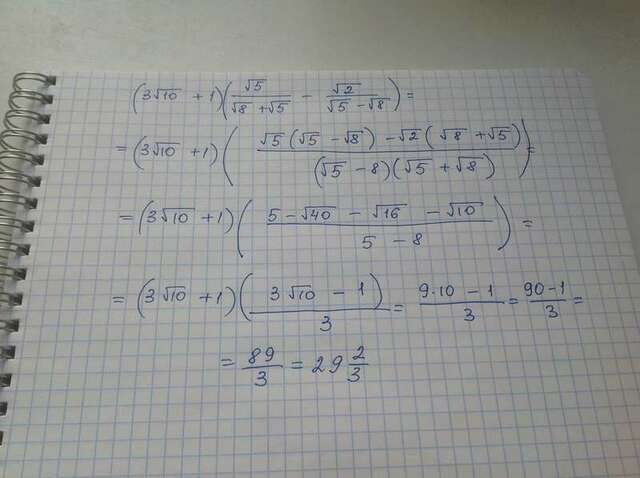 (3√10 + 1)(√5/(√8 + √5) − √2/(√5 − √8)) =
= (3√10 + 1)((√5(√5 − √8) − √2(√8 + √5))/((√5 − 8)(√5 + √8))) =
= (3√10 + 1)((5 − √40 − √16 − √10)/(5 − 8)) =
= (3√10 + 1)((3√10 − 1)/3) = (9·10 − 1)/3 = (90 − 1)/3 =
= 89/3 = 29 2/3